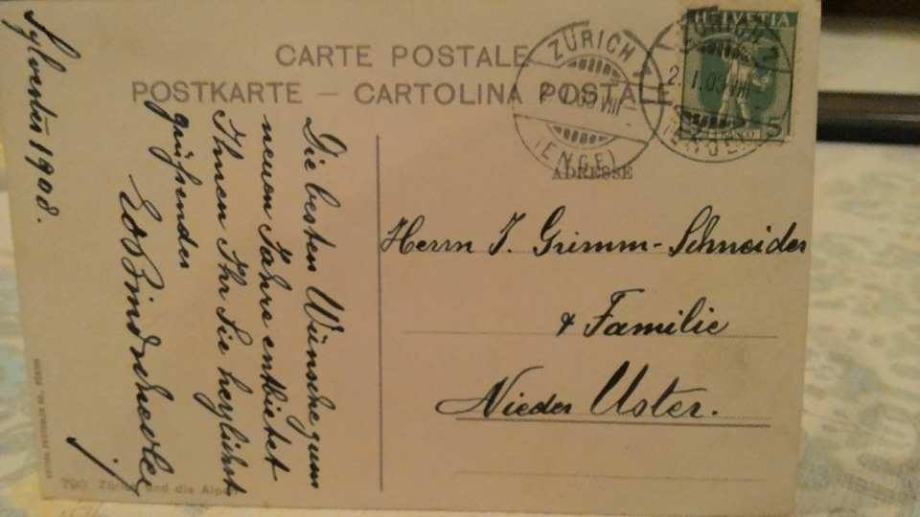 CARTE POSTALE
POSTKARTE – CARTOLINA POSTALE
HELVETIA
5
FRANCO
ZÜRICH
(ENGE)
ZÜRICH
(ENGE)
ADRESSE
Sylvester 1908.
Die besten Wünsche zum
neuen Jahre entbietet
Ihnen Ihr Sie herzlichst
grüssender
Herrn J. Grimm-Schneider
& Familie
Nieder Uster.
Zürich und die Alpen